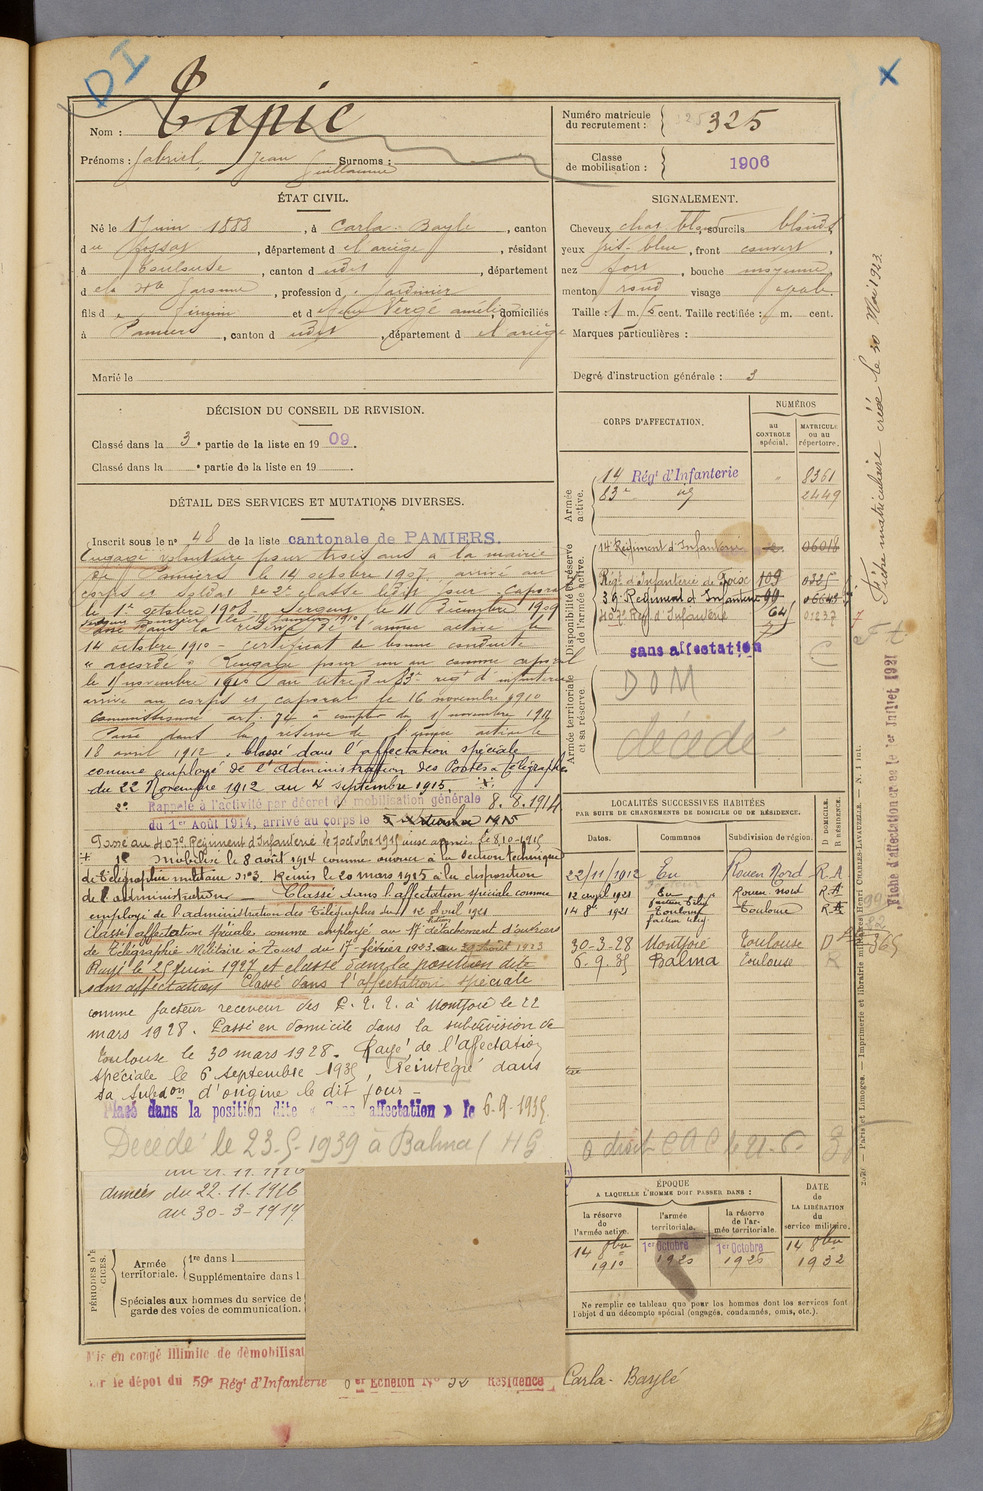 DI
X
Nom : Tapie
Prénoms : Gabriel Jean Guillaume Surnoms :
Numéro matricule du recrutement : 325
Classe de mobilisation : 1906
ÉTAT CIVIL.
Né le 1 Juin 1888, à Carla-Bayle, canton
du Fossat, département d e l'Ariège, résidant
à Toulouse, canton d udit, département
d e la Hte Garonne, profession d e Jardinier
fils d e Firmin et d e Vergé amélie, domiciliés
à Pamiers, canton d udit, département d e l'ariège
Marié le
SIGNALEMENT.
Cheveux chat. sourcils blonds
yeux gris-bleu, front couvert,
nez fort, bouche moyenne
menton rond visage ovale
Taille : 1 m. cent. Taille rectifiée : m. cent.
Marques particulières :
Degré d'instruction générale : 3
DÉCISION DU CONSEIL DE REVISION.
Classé dans la 3e partie de la liste en 1909.
Classé dans la e partie de la liste en 19
DÉTAIL DES SERVICES ET MUTATIONS DIVERSES.
Inscrit sous le n° 48 de la liste cantonale de PAMIERS.
Engagé volontaire pour trois ans à la mairie
de Pamiers le 14 octobre 1907, arrivé au
corps et soldat de 2e classe le dit jour. Caporal
le 1er octobre 1908. Sergent le 11 Décembre 1909
Passé dans la réserve de l'armée active le
14 octobre 1910 - certificat de bonne conduite
"accordé". Rengagé pour un an comme caporal
le 15 novembre 1910 au titre du 83e regt d'infanterie
arrivé au corps et caporal le 16 novembre 1910
Commissionné art. 74 à compter du 15 novembre 1911
Passé dans la réserve de l'armée active le
18 avril 1912. Classé dans l'affectation spéciale
comme employé de l'Administration des Postes & Télégraphes
du 22 Novembre 1912 au 4 septembre 1915.
2° Rappelé à l'activité par décret de mobilisation générale 8.8.1914
du 1er Août 1914, arrivé au corps le
Passé au 407e Régiment d'Infanterie le 7 octobre 1915
1° Mobilisé le 8 août 1914 comme ouvrier à la Section technique
de Télégraphie militaire n°3. Remis le 20 mars 1915 à la disposition
de l'administration - Classé dans l'affectation spéciale comme
employé de l'administration des Télégraphes du 12 avril 1921
Classé affectation spéciale comme employé au 17e détachement d'ouvriers
de Télégraphie Militaire à Tours du 17 février 1923 au 29 Août 1923
Rayé le 25 juin 1927 et classé dans la position dite
sans affectation Classé dans l'affectation spéciale
comme facteur receveur des P.T.T. à Montjoie le 22
mars 1928. Passé en domicile dans la subdivision de
Toulouse le 30 mars 1928. Rayé de l'affectation
spéciale le 6 septembre 1935, réintégré dans
sa subdon d'origine le dit jour -
Placé dans la position dite « Sans affectation » le 6-9-1935
Décédé le 23-5-1939 à Balma (HG
armées du 22-11-1916
au 30-3-1919
PÉRIODES D'E
CICES.
Armée territoriale. 1re dans l
Supplémentaire dans l
Spéciales aux hommes du service de
garde des voies de communication.
Mis en congé illimité de démobilisat
sur le dépôt du 59e Régt d'Infanterie Echelon N° 32 Résidence Carla-Baylé
CORPS D'AFFECTATION.
NUMÉROS
au CONTROLE spécial.
MATRICULE ou au répertoire.
Armée active.
14 Régt d'Infanterie 8361
83e 2449
Disponibilité et réserve de l'armée active.
14e Régiment d'Infanterie 06018
Régt d'infanterie de Foix 109 0325
39e Régiment d'Infanterie 90
407e Rég d'Infanterie 01237
sans affectation
Armée territoriale et sa réserve.
DOM
décédé
LOCALITÉS SUCCESSIVES HABITÉES
PAR SUITE DE CHANGEMENTS DE DOMICILE OU DE RÉSIDENCE.
Dates. Communes Subdivision de région. D DOMICILE. R RÉSIDENCE.
22/11/1912 Eu Rouen Nord R A
12 avril 1921 Eu Rouen nord R.A
14 8e 1921 Toulouse Toulouse R A
30-3-28 Montjoie Toulouse D
6.9.35 Balma Toulouse R
ÉPOQUE
A LAQUELLE L'HOMME DOIT PASSER DANS :
la réserve de l'armée active. l'armée territoriale. la réserve de l'armée territoriale.
DATE de LA LIBÉRATION du service militaire.
14 8bre 1910
1er Octobre 1920
1er Octobre 1926
14 8bre 1932
Ne remplir ce tableau que pour les hommes dont les services font
l'objet d'un décompte spécial (engagés, condamnés, omis, etc.).
Fiche matriculaire créée le 30 Mai 1923.
Fiche d'affectation créée le 1er Juillet 1921
Paris et Limoges. — Imprimerie et librairie militaires Henri CHARLES-LAVAUZELLE. — N. I int.